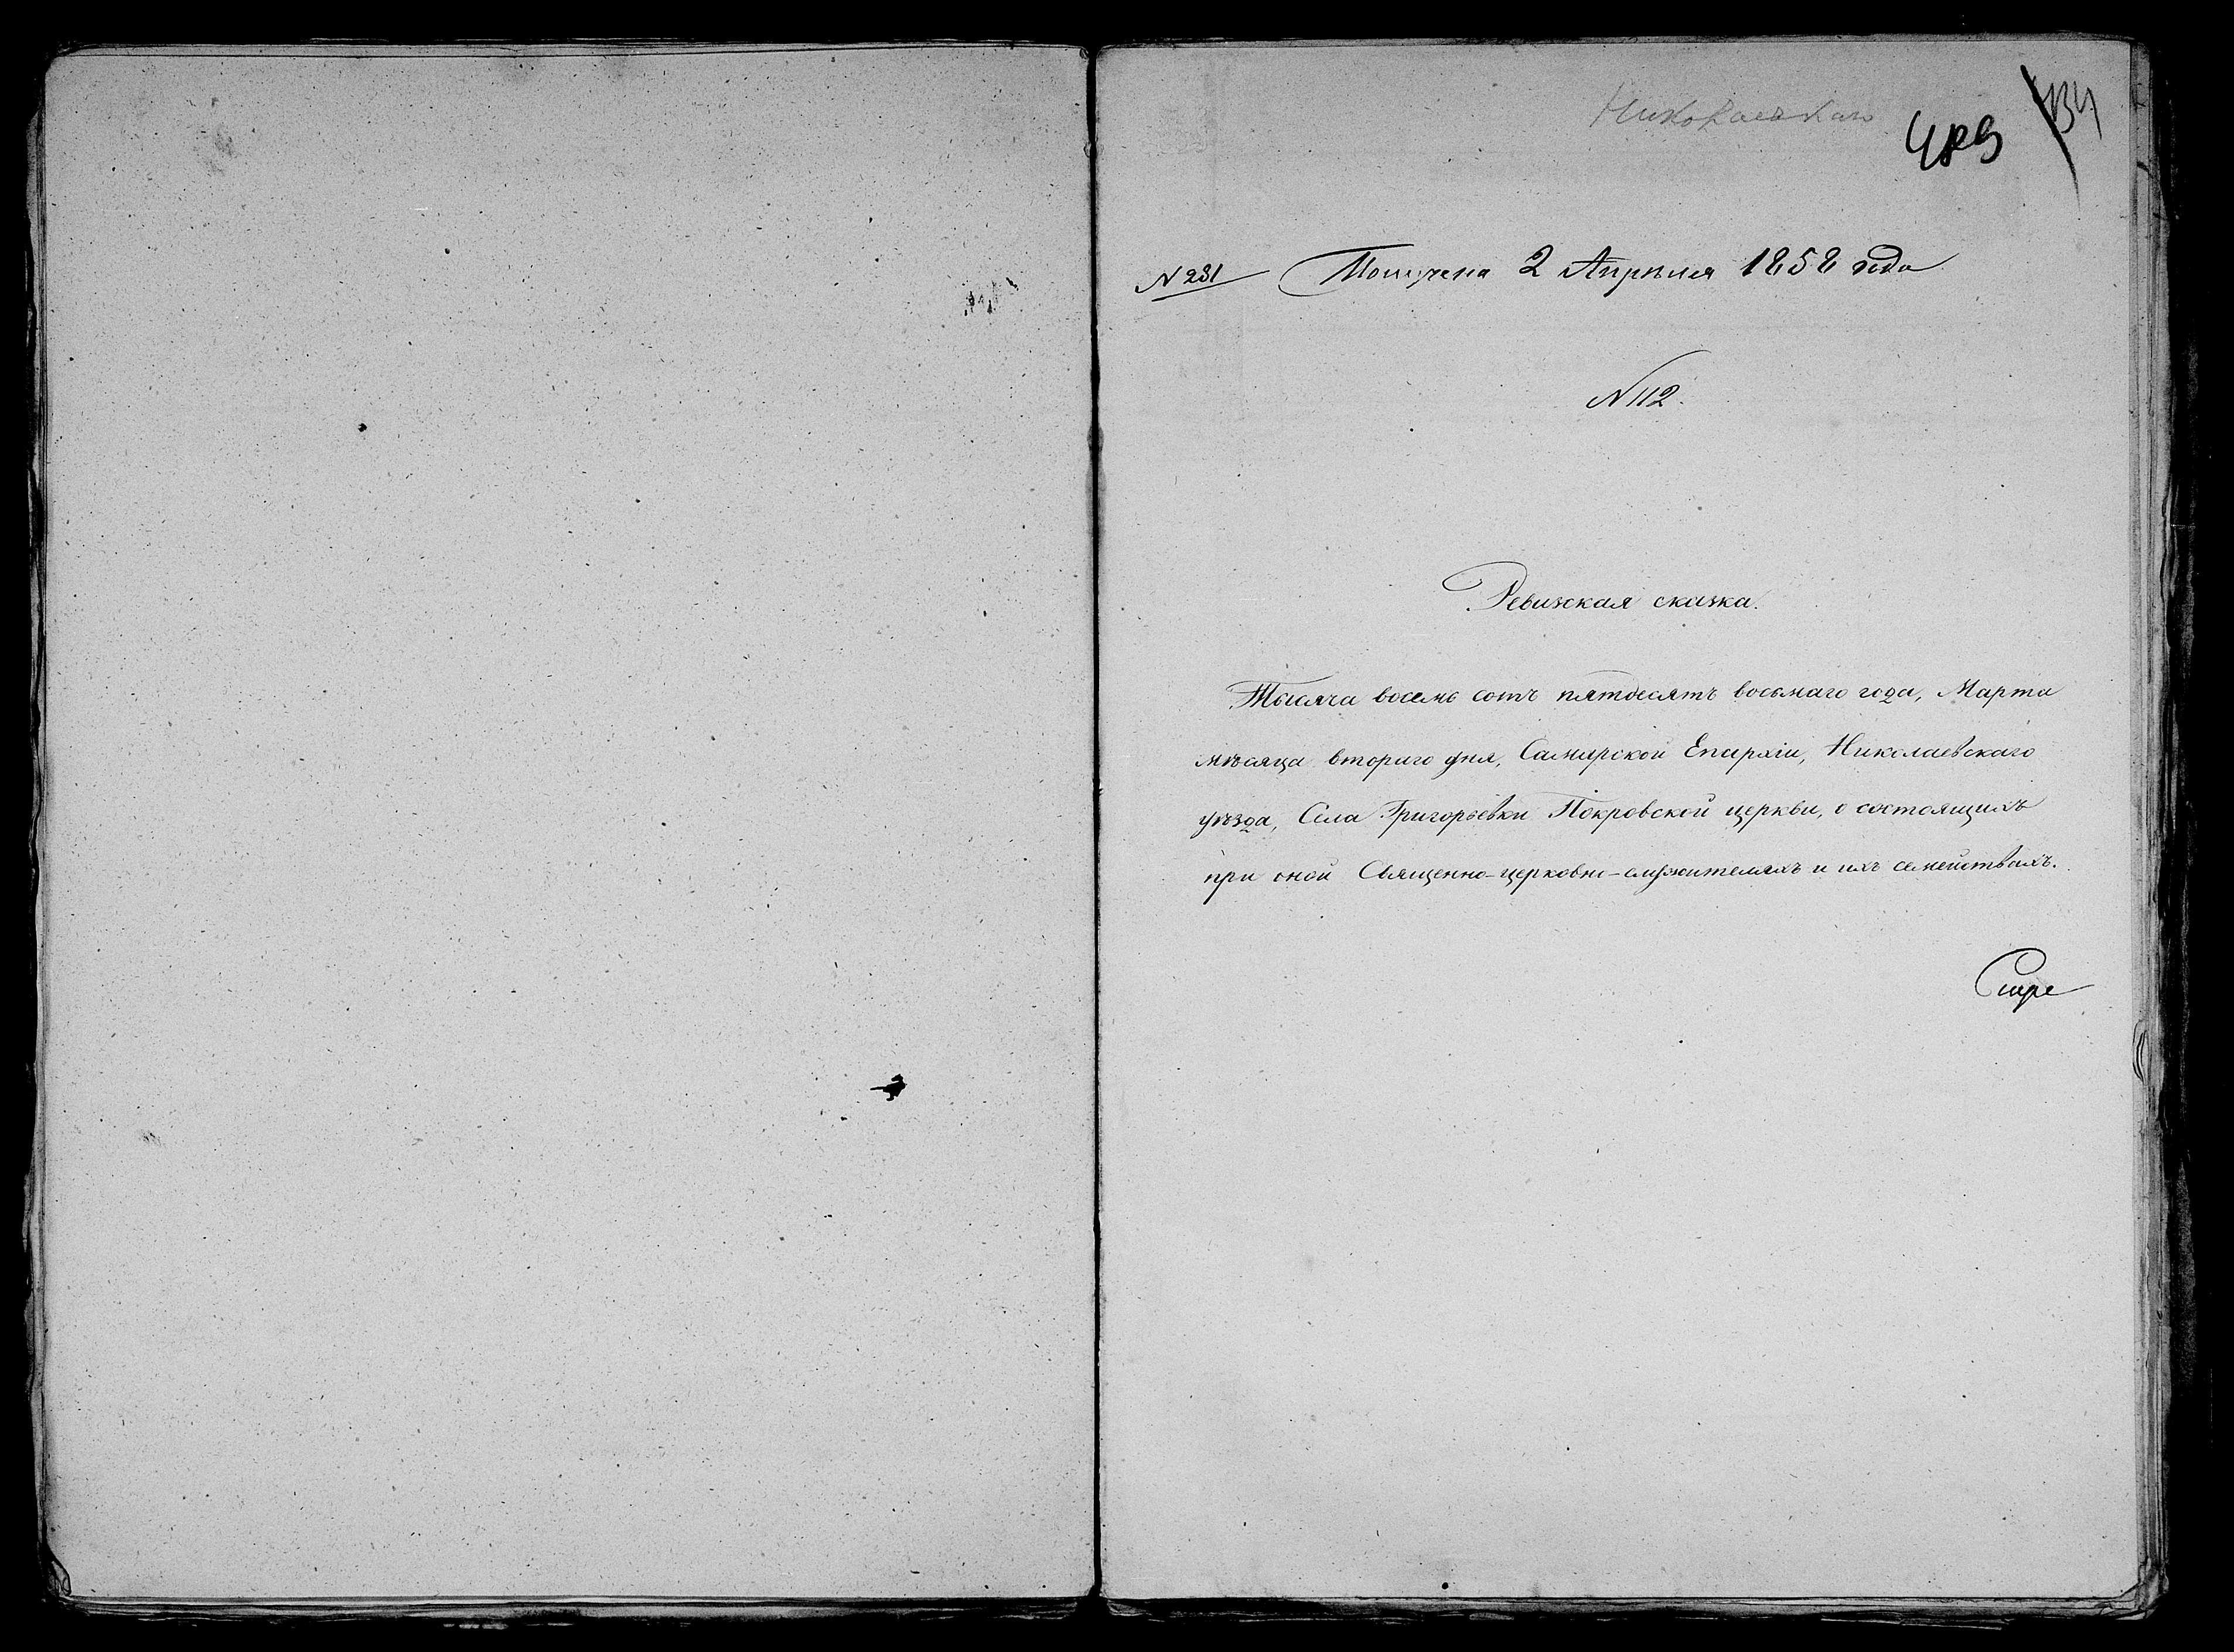 Николаевскаго
N 231 Получена 2 Апрѣля 1858 года
N 112.
Ревизская сказка.
Тысяча восемь сотъ пятдесятъ восьмаго года, Марта
мѣсяца втораго дня, Самарской Епархіи, Николаевскаго
уѣзда, Села Григорьевки Покровской церкви, о состоящихъ
при оной Священно-церковно-служителяхъ и ихъ семействахъ.